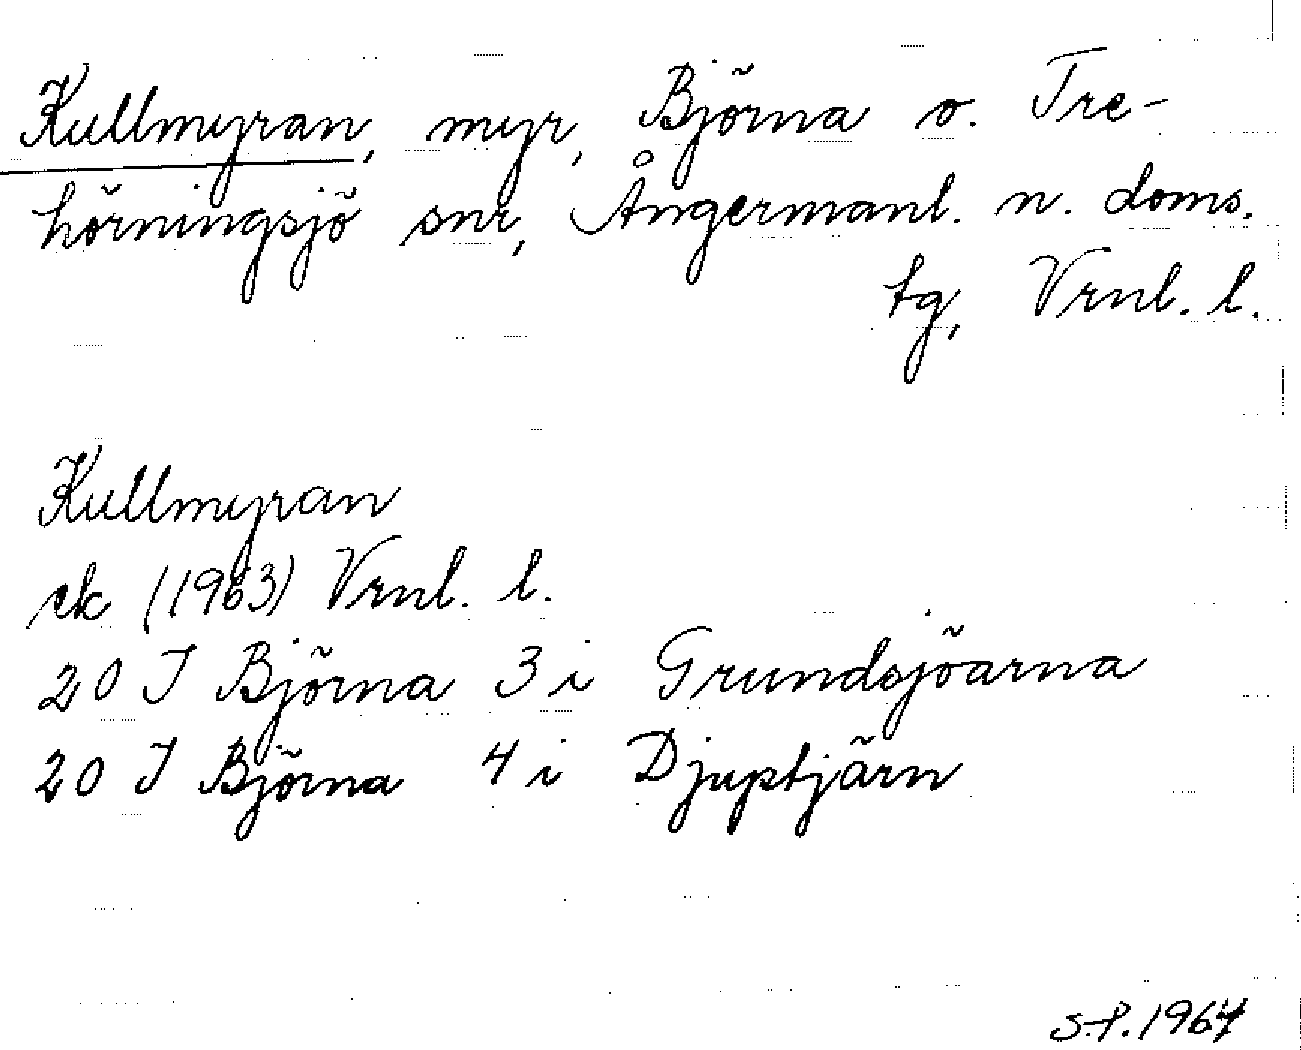 Kullmyran, myr, Björna o. Tre-
hörningsjö snr, Ångermanl. n. doms.
tg, Vrnl. l.
Kullmyran
ek (1963) Vrnl. l.
20 I Björna 3 i Grundsjöarna
20 I Björna 4 i Djuptjärn
S.P. 1967